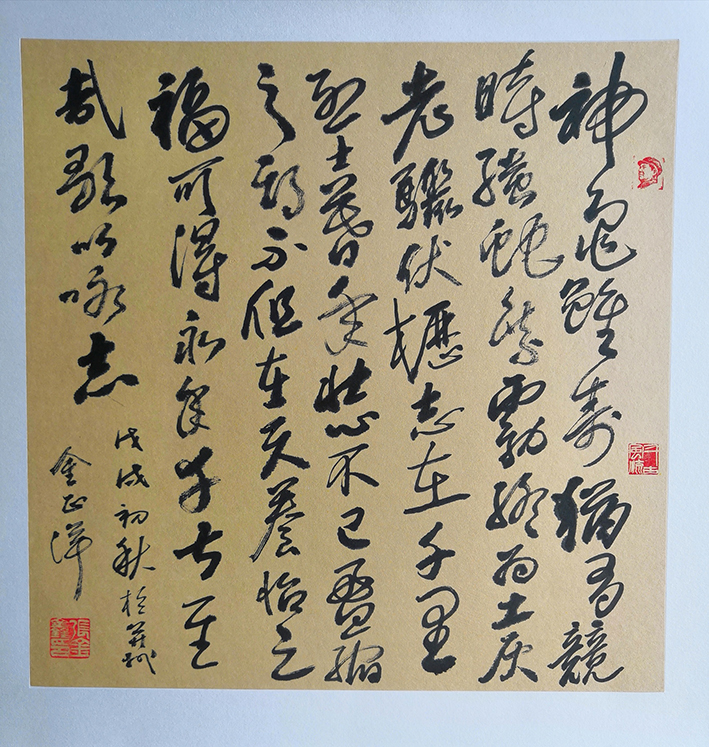 神龜雖壽猶有競
時騰蛇乘霧終為土灰
老驥伏櫪志在千里
烈士暮年壯心不已盈縮
之期不但在天養怡之
福可得永年幸甚至
哉歌以咏志
戊戌初秋於
金正洋